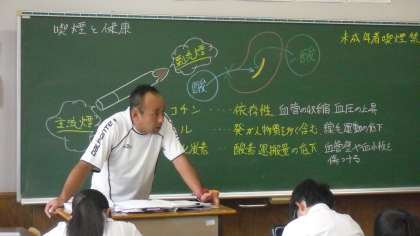 喫煙と健康
未成年者喫煙禁
副流煙
酸
酸
主流煙
コチン …… 依存性 血管の収縮 血圧の上昇
ル …… 発がん物質を多く含む 線毛運動の低下
酸素運搬量の低下 血管壁や血小板を
傷つける